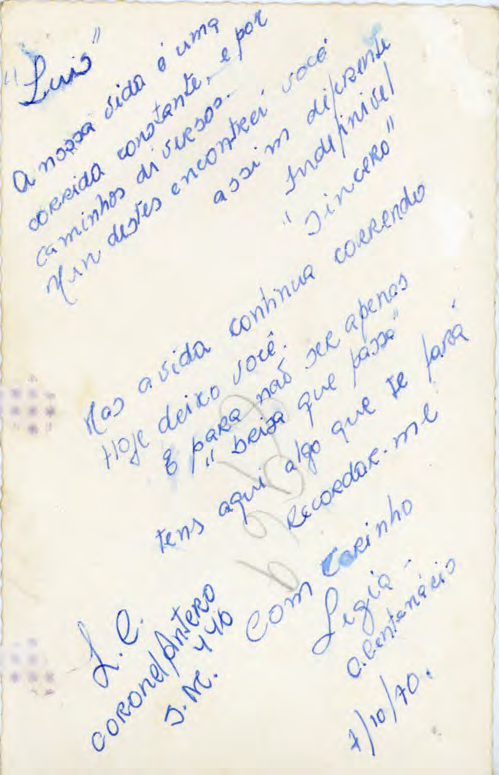 "Luis"
A nossa vida é uma
corrida constante, e por
caminhos diversos.
Num destes encontrei você
assim diferente
Indefinível
"sincero"
Mas a vida continua correndo
Hoje deixo você.
E para não ser apenas
"briza que passa"
tens aqui algo que te fará
Recordar-me
Com Carinho
Ligia -
O. Centenário
7/10/70.
L.C.
Coronel Antero
446
J.M.